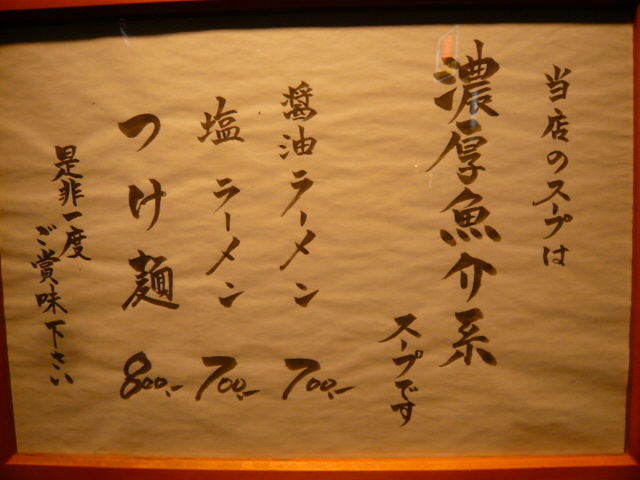 当店のスープは
濃厚魚介系
スープです
醤油ラーメン 700,-
塩ラーメン 700,-
つけ麺 800,-
是非一度
ご賞味下さい